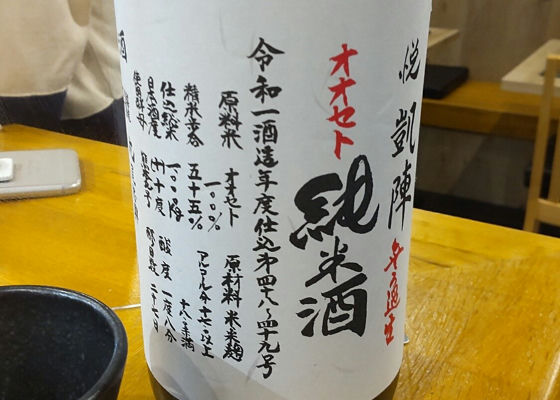 悦凱陣
無濾過生
オオセト
純米酒
令和一酒造年度仕込第四十八〜四十九号
原料米 オオセト 一〇〇%
原材料 米 米麹
精米歩合 五十五%
アルコール分 十七度以上
十八度未満
仕込総米 一〇〇〇瓩
酸度 一度八分
日本酒度 (+)十度
醪日数 二十一日
使用酵母